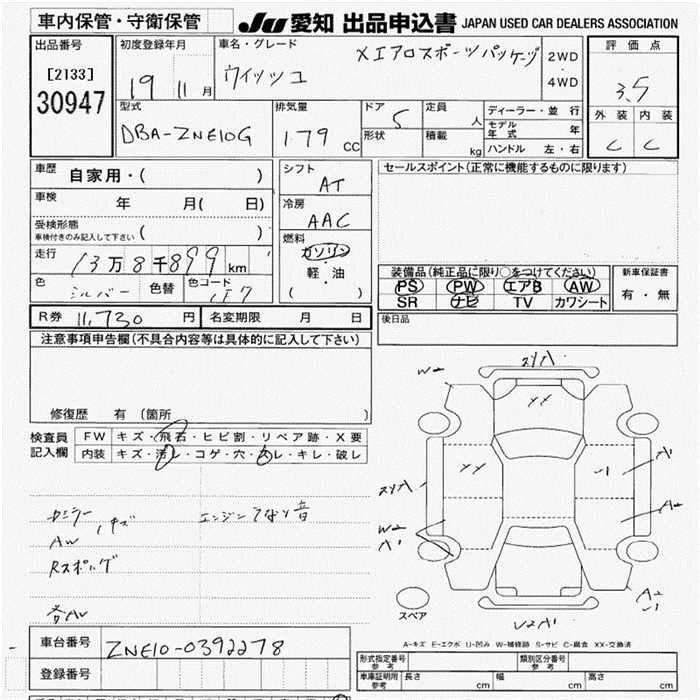 車内保管・守衛保管
JU 愛知 出品申込書 JAPAN USED CAR DEALERS ASSOCIATION
出品番号
[2133]
30947
初度登録年月
19 11 月
車名・グレード
ウイッシュ
X エアロスポーツパッケージ
2WD
・
4WD
評価点
3.5
外装 内装
C C
型式
DBA-ZNE10G
排気量
1.79 CC
ドア
5
形状
定員
人
積載
kg
ディーラー・並行
モデル年式 年
ハンドル 左・右
車歴 自家用・( )
車検 年 月( 日)
受検形態
車検付きのみ記入して下さい ( )
走行 13万8千899km
色 シルバー 色替 色コード 1F7
シフト
AT
冷房
AAC
燃料
ガソリン
軽・油
( )
セールスポイント(正常に機能するものに限ります)
装備品(純正品に限り○をつけてください)
PS PW エアB AW
SR ナビ TV カワシート
新車保証書
有・無
後日品
R券 11,730 円 名変期限 月 日
注意事項申告欄(不具合内容等は具体的に記入して下さい)
修復歴 有 (箇所 )
検査員
記入欄
FW キズ・飛石・ヒビ割・リペア跡・X要
内装 キズ・汚レ・コゲ・穴・スレ・キレ・破レ
エンジンうなり音
AW キズ
Rスポッグ
各AW
W2
XX
XX
W2
A1
A1
A2
A2
スペア
U2A1
A-キズ E-エクボ U-凹み W-補修跡 S-サビ C-腐食 XX-交換済
車台番号 ZNE10-0392278
登録番号
形式指定番号
参考
類別区分番号
参考
車庫証明用
参考
長さ cm 幅 cm 高さ cm